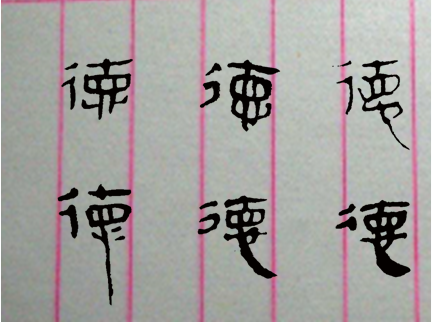 德德德
德德德